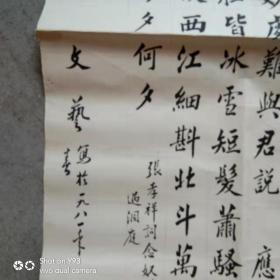 處難與君說應
皆冰雪短髮蕭騷
西江細斟北斗萬
夕何夕
張孝祥詞念奴
過洞庭
文藝寫於一九八一年
春
SHOT ON Y93
vivo dual camera